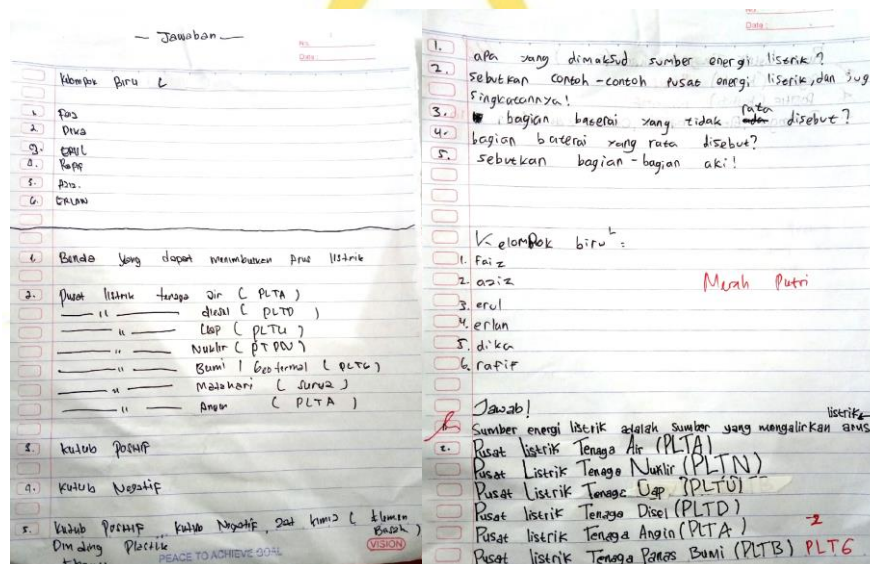 — Jawaban —
No.
Date:
Kelompok Biru L
1.
2. Dika
3.
4.
5. Aziz.
6. ERLAN
1. Benda yang dapat menimbulkan Arus listrik
2. Pusat listrik tenaga air ( PLTA )
—— " —— diesel ( PLTD )
—— " —— Uap ( PLTU )
—— " —— Nuklir
—— " —— Bumi / Geotermal ( PLTG )
—— " —— Matahari ( surya )
—— " —— Angin ( PLTA )
3. kutub Positif
4. Kutub Negatif
5. Kutub Positif, Kutub Negatif, zat kimia ( Elemen Basah )
Dinding Plastik
PEACE TO ACHIEVE GOAL
VISION
Date:
1. apa yang dimaksud sumber energi listrik?
2. sebutkan contoh-contoh pusat energi listrik, dan jug
singkatannya!
3. bagian baterai yang tidak rata disebut?
4. bagian baterai yang rata disebut?
5. sebutkan bagian-bagian aki!
Kelompok biru L :
1. faiz
2. aziz
Merah Putri
3. erul
4. erlan
5. dika
6. rafif
Jawab!
1. Sumber energi listrik adalah sumber yang mengalirkan arus listrik
2. Pusat listrik Tenaga Air (PLTA)
Pusat Listrik Tenaga Nuklir (PLTN)
Pusat Listrik Tenaga Uap (PLTU)
Pusat listrik Tenaga Disel (PLTD)
Pusat listrik Tenaga Angin (PLTA)
-2
Pusat listrik Tenaga Panas Bumi (PLTB) PLTG